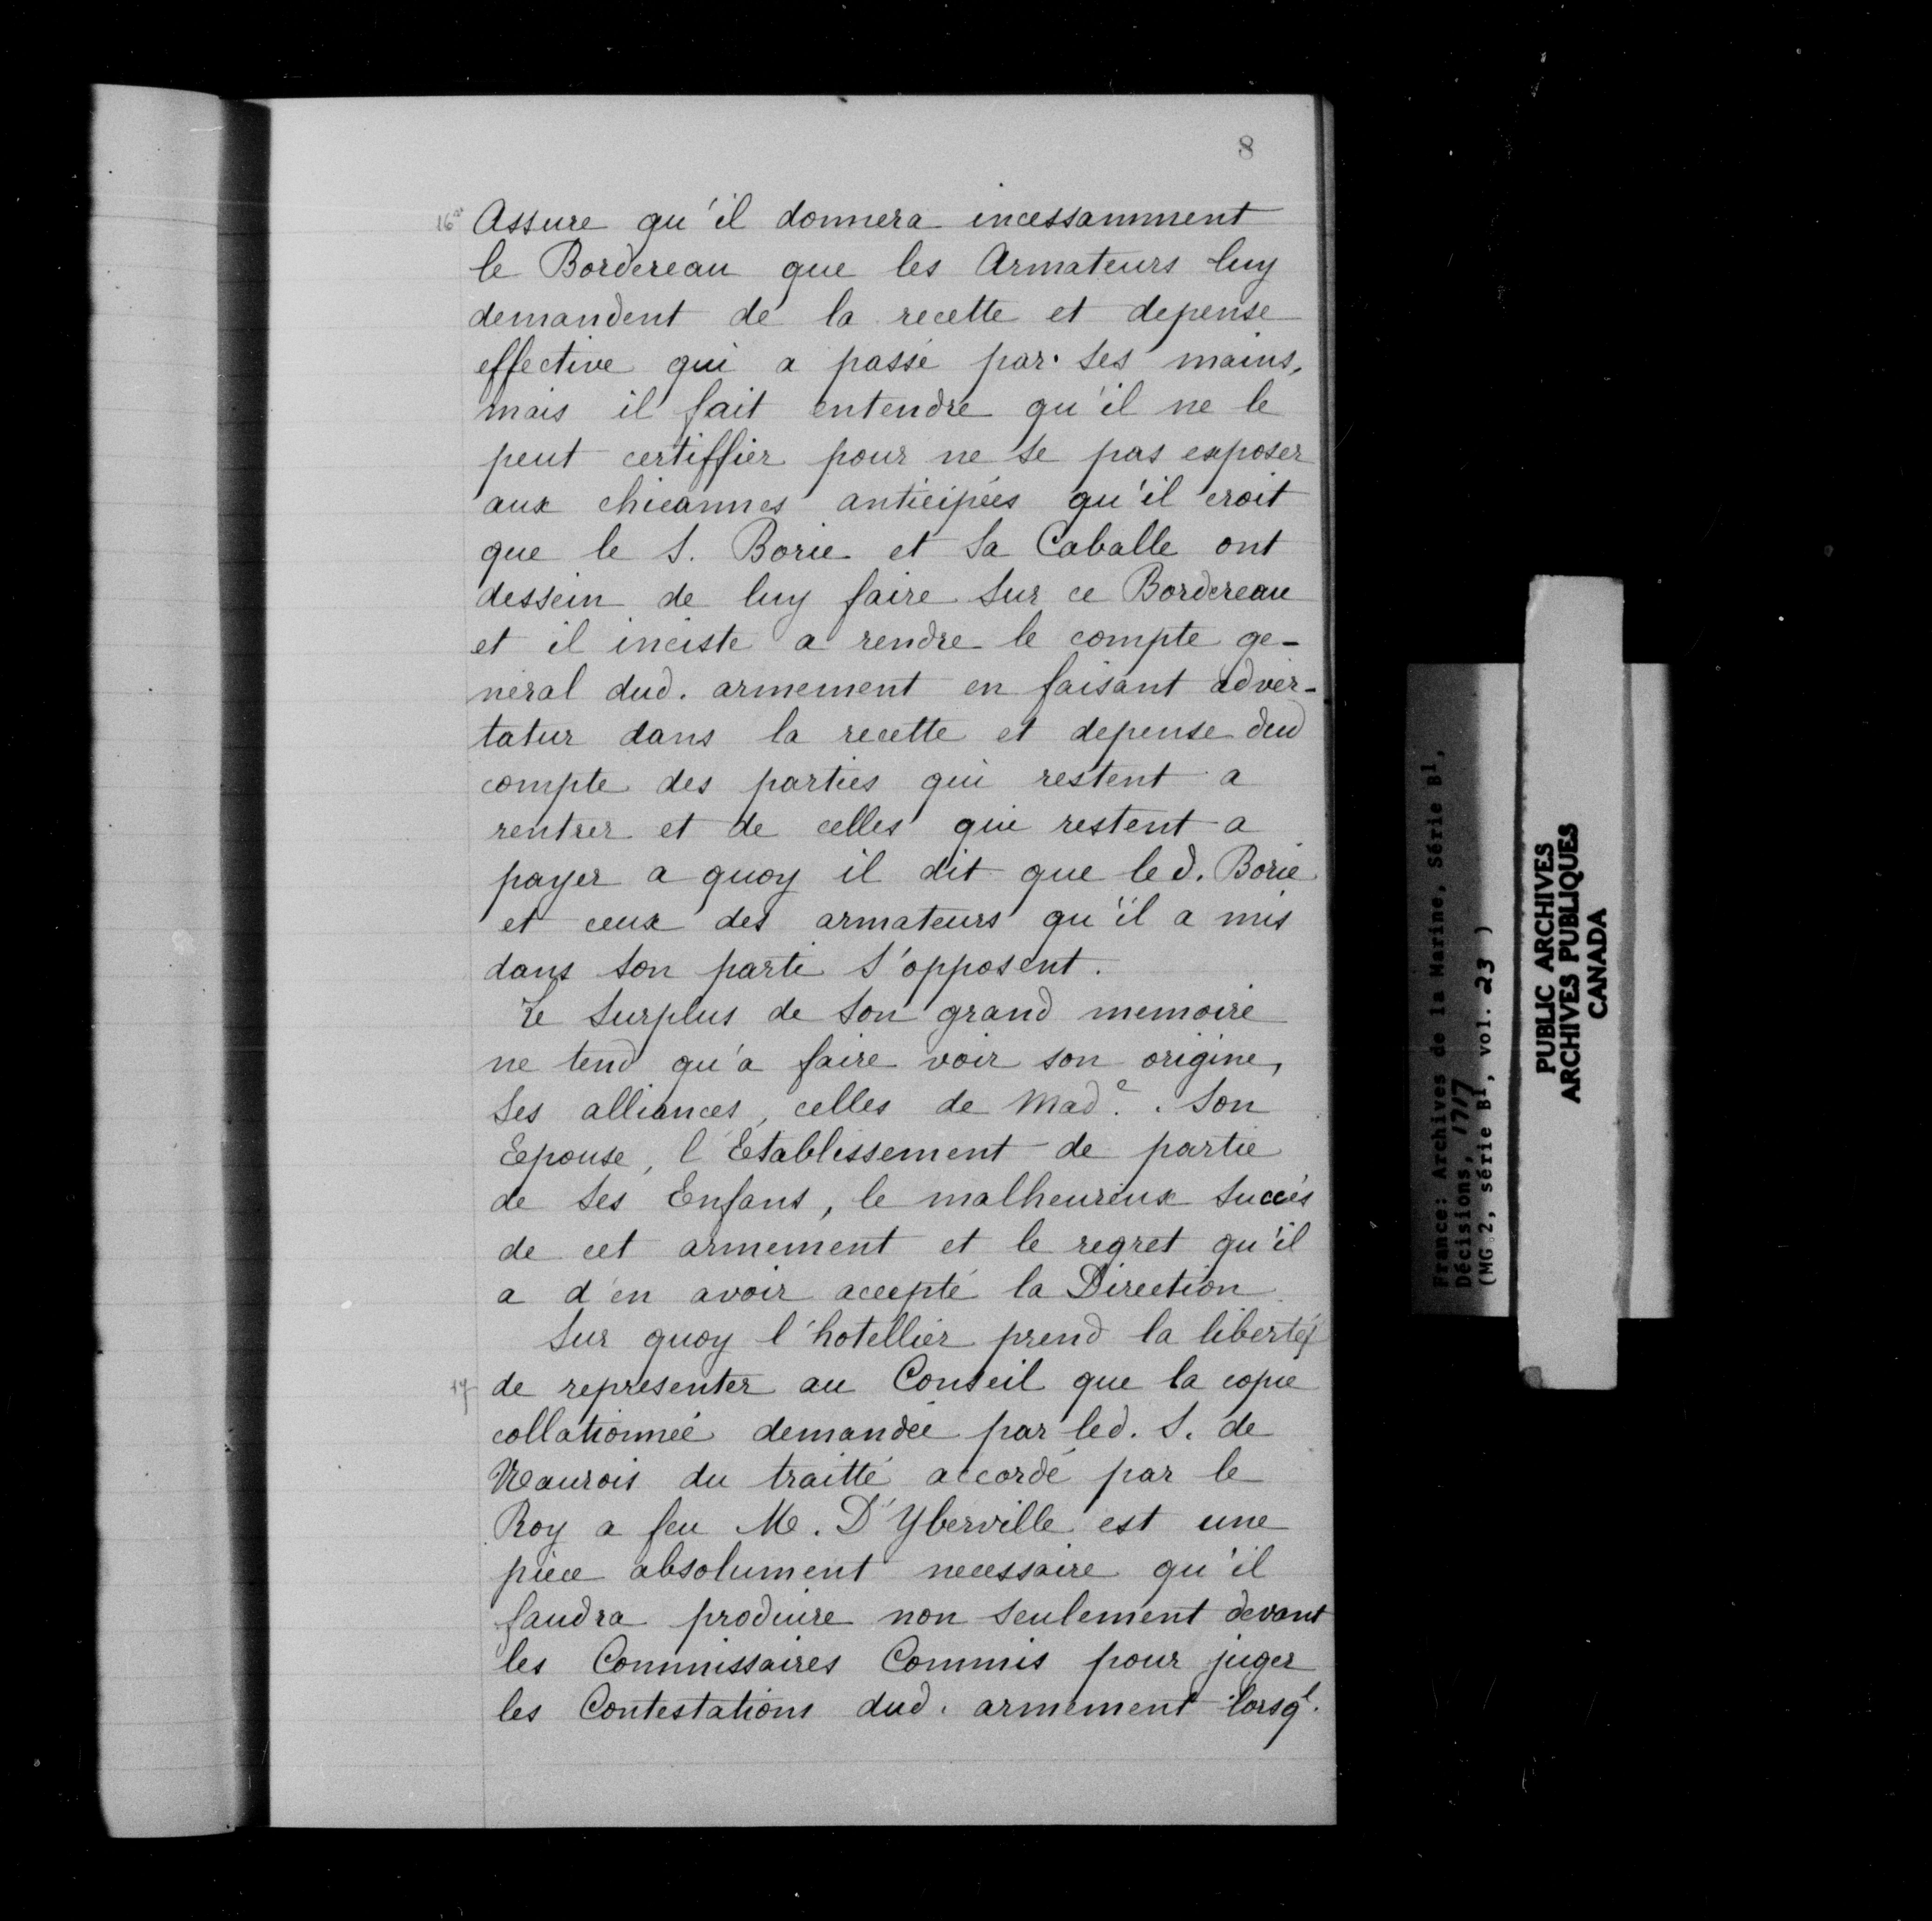 8
Assure qu'il donnera incessamment
le Bordereau que les Armateurs luy
demandent de la recette et depense
effective qui a passé par ses mains,
mais il fait entendre qu'il ne le
peut certiffier pour ne se pas exposer
aux chicannes anticipées qu'il croit
que le S. Borie et Sa Caballe ont
dessein de luy faire Sur ce Bordereau
et il inciste a rendre le compte ge-
neral dud. armement en faisant adver-
tatur dans la recette et depense dud
compte des parties qui restent a
rentrer et de celles qui restent a
payer a quoy il dit que led. Borie
et ceux des armateurs qu'il a mis
dans son parti s'opposent.
Le Surplus de Son grand memoire
ne tend qu'a faire voir son origine,
Ses alliances, celles de Mad.e. Son
Epouse, l'Etablissement de partie
de ses Enfans, le malheureux Succés
de cet armement et le regret qu'il
a d'en avoir accepté la Direction
Sur quoy l'hotellier prend la liberté
17 de representer au Conseil que la copie
collationneé demandée par led. S. de
Vaurois du traitté accordé par le
Roy a feu M. D'Yberville est une
piece absolument necessaire qu'il
faudra produire non Seulement devant
les Commissaires Commis pour juger
les Contestations dud. armement lorsql.
France: Archives de la Marine, Série B1,
Décisions, 1717
(MG 2, série B1, vol. 23 )
PUBLIC ARCHIVES
ARCHIVES PUBLIQUES
CANADA